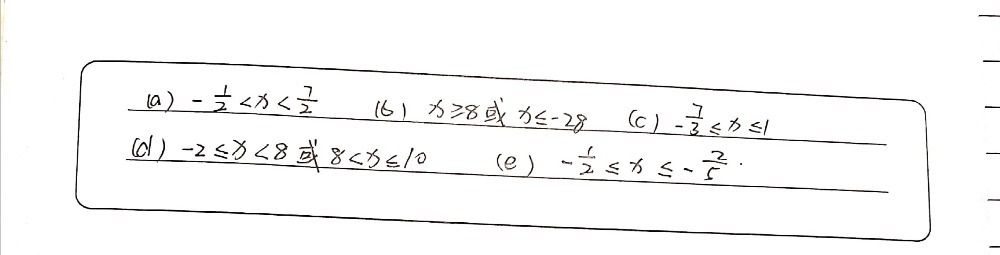 (a) -1/2 < x < 7/2 (b) x≥8 或 x≤-28 (c) -7/3 ≤ x ≤ 1
(d) -2 ≤ x < 8 或 8 < x ≤ 10 (e) -1/2 ≤ x ≤ -2/5.